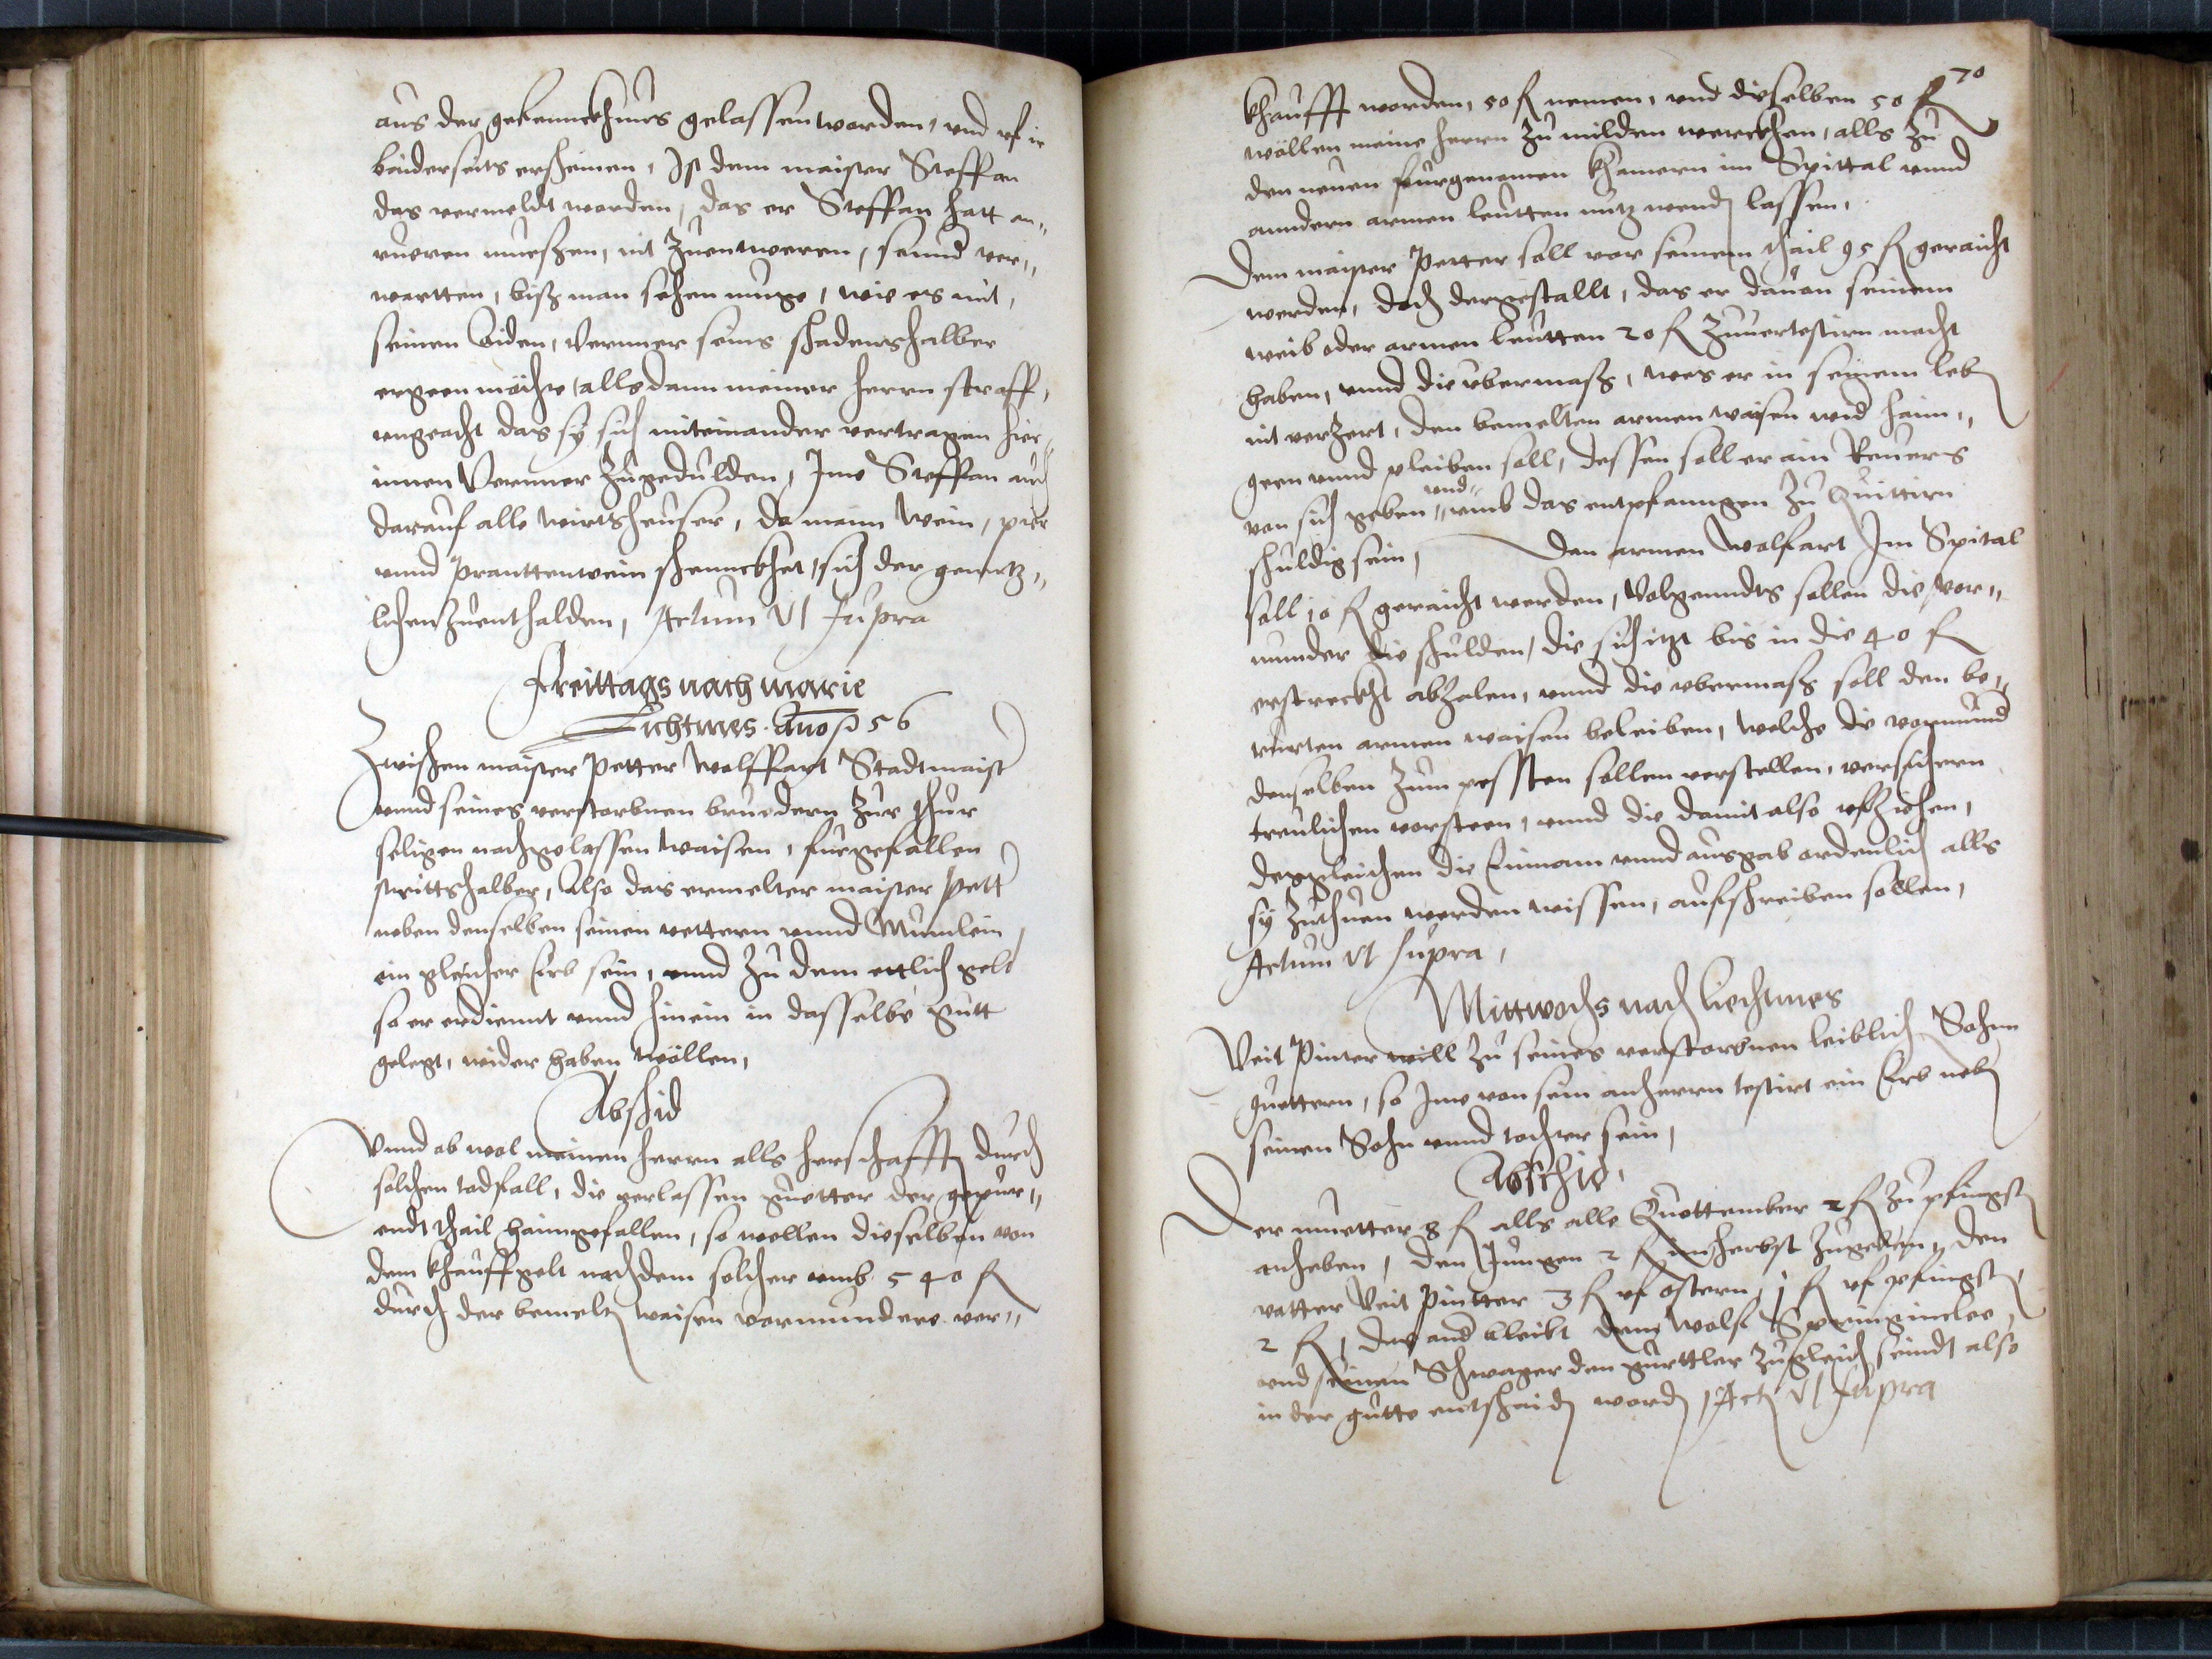 aus der gefenncknus gelassen worden, und uf ir
baiderseits erscheinen, Ist dem maister Steffan
das vermeldt worden, das er Steffan hatt an„
rueren muessen, nit zuentweren, sonnd ver„
wartten, biß man sehen muge, wie es mit,
seinen Aiden, Vermner seins schadenshalber
ergeen möchte, allsdann meiner herrn straff,
ungeacht das sy sich miteinander vertragen hier„
innen Vermner zugedulden, Ime Steffan auch
darauf alle wirtsheuser, da mann Wein, pier
unnd pranttenwein schennckhet, sich der gentz„
lichen zuenthalden, Actum Vt supra
Freittags nach marie
Lichtmes. Anno 56
Zwischen maister Petter Wolffart Stadtmaister
unnd seines verstorbnen brueders zur Thur
seligen nachgelassen waisen, furgefallen
stritts halber, Also das ermelter maister Petter
neben denselben seinen vettern unnd Mumlein
ein gleicher Erb sein, unnd zu dem ettlich gelt
so er erdiennt unnd hinein in dasselbe gutt
gelegt, wider haben wöllen,
Abschid
Unnd ob wol meinen herrn alls herschafft durch
solchen todfall, die verlassen guetter der gepur„
endt thail haimgefallen, so wellen dieselben von
dem khauffgelt nachdem solcher umb 540 fl
durch der bemelten waisen vormundere ver„
70
khaufft worden, 50 fl nemen, und dieselben 50 fl
wöllen meine herrn zu milden werckhen, alls zu
den neuen furgenomen khamern im Spittal unnd
anndern armen leutten nutz wenden lassen,
Dem maister Petter soll vor seinem thail 95 fl geraicht
werden, doch dergestallt, das er dauon seinem
weib oder armen leutten 20 fl zuuertestirn macht
haben, unnd die ubermaß, was er in seinem leben
nit verzert, den bemelten armen waisen wid haim„
geen unnd pleiben soll, dessen soll er ain Reuers
von sich geben und umb das entpfanngen zu Quittirn
schuldig sein, Den armen Wolfart Im Spital
soll 10 fl geraicht werden, Volgenndts sollen die vor„
munder die schulden, die sich itzt bis in die 40 fl
erstreckht abzalen, unnd die ubermaß soll den be„
rürten armen waisen beleiben, welche die vormund
denselben zum possten sollen verstellen, versichern
treulichen vorsteen, unnd die damit also ufziehen,
dergleichen die Einnam unnd ausgab ordenlich alls
sy zuthuen werden wissen, aufschreiben sollen,
Actum Vt supra,
Mittwochs nach liechtmes
Veit Pinter will zu seines verstorbnen leiblich Sohnn
guettern, so Ime von sein anherrn testirt ein Erb neben
seinen Sohn unnd tochter sein,
Abschid,
Der muetter 8 fl alls alle Quottember 2 fl zu pfingsten
anheben, den Jungen 2 fl im herbst zugeben, den
vatter Veit Pintter 3 fl uf ostern, 1 fl uf pfingsten,
2 fl, das and bleibt dem Wolf Springinclee,
und seinen Schwager den gurttler zugleich seindt also
in der gutte entschaiden worden, Actum Vt supra